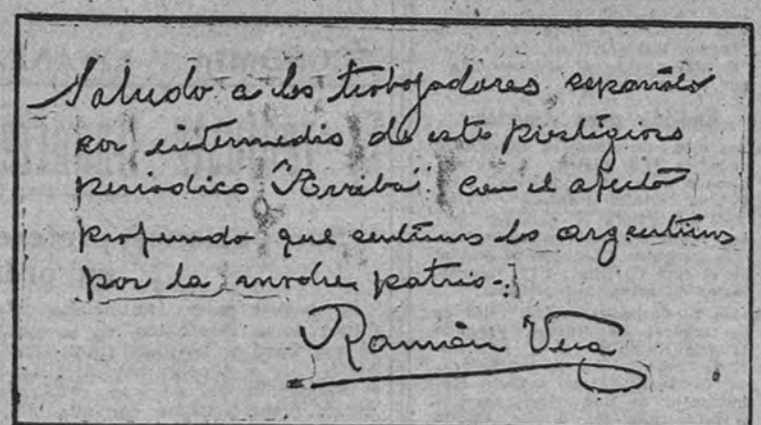 Saludo a los trabajadores españoles
por intermedio de este prestigioso
periodico "Arriba" con el afecto
profundo que sentimos los argentinos
por la madre patria.
Ramón Vera